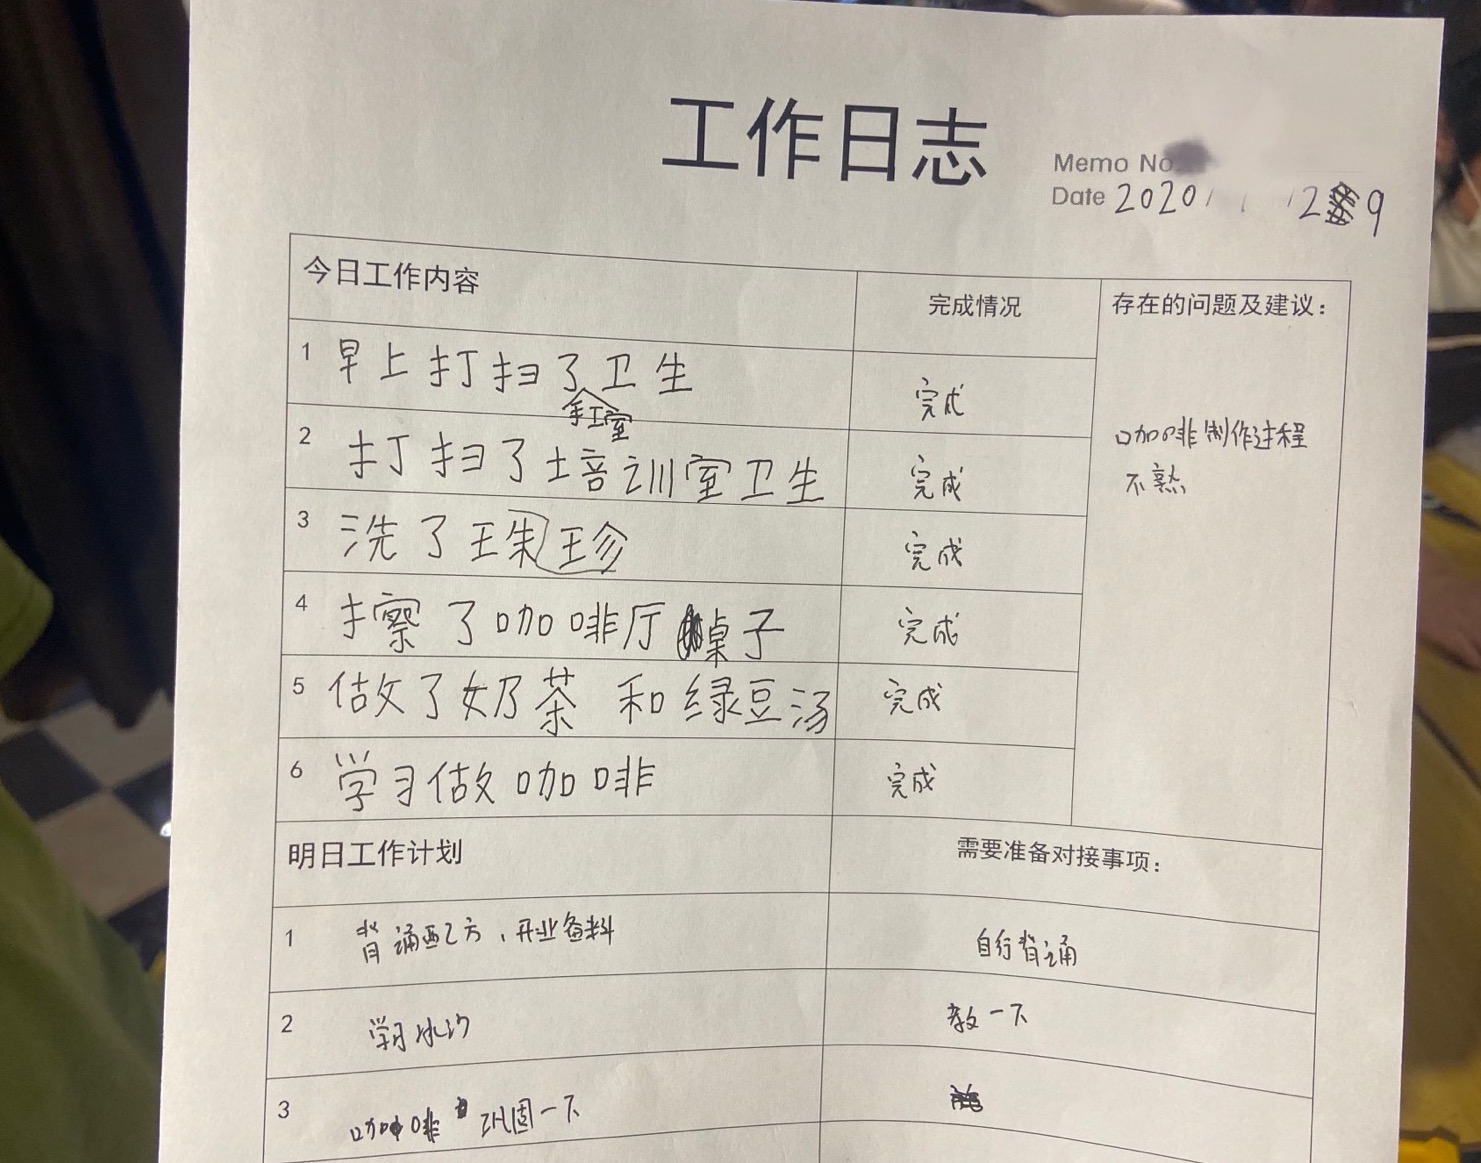 工作日志
Memo No.
Date 2020 / / / 29
今日工作内容
完成情况
存在的问题及建议：
1 早上打扫了卫生
完成
手工室
2 打扫了培训室卫生
完成
咖啡制作过程
不熟
3 洗了珠珍
完成
4 擦了咖啡厅桌子
完成
5 做了奶茶 和绿豆汤
完成
6 学习做咖啡
完成
明日工作计划
需要准备对接事项：
1 背诵配方、开业备料
自行背诵
2 学习冰沙
教一下
3 咖啡 巩固一下